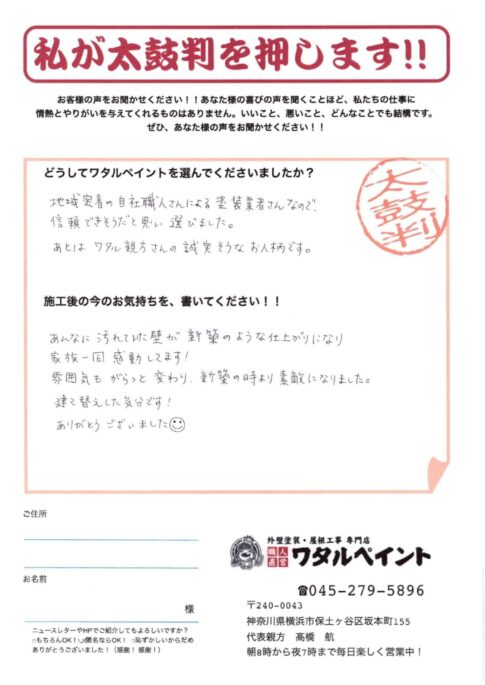 私が太鼓判を押します!!
お客様の声をお聞かせください！！あなた様の喜びの声を聞くことほど、私たちの仕事に
情熱とやりがいを与えてくれるものはありません。いいこと、悪いこと、どんなことでも結構です。
ぜひ、あなた様の声をお聞かせください！！
どうしてワタルペイントを選んでくださいましたか？
太鼓判
地域密着の自社職人さんによる塗装業者さんなので、
信頼できそうだと思い選びました。
あとは ワタル親方さんの誠実そうなお人柄です。
施工後の今のお気持ちを、書いてください！！
あんなに汚れていた壁が新築のような仕上がりになり
家族一同感動してます!
雰囲気もがらっと変わり、新築の時より素敵になりました。
建て替えした気分です!
ありがとうございました☺
ご住所
お名前
様
ニュースレターやHPでご紹介してもよろしいですか？
□もちろんOK！□匿名ならOK！ □恥ずかしいからだめ
ありがとうございました！（感謝！感謝！）
外壁塗装・屋根工事 専門店
職人直営 ワタルペイント
☎045-279-5896
〒240-0043
神奈川県横浜市保土ヶ谷区坂本町155
代表親方 高橋 航
朝8時から夜7時まで毎日楽しく営業中！